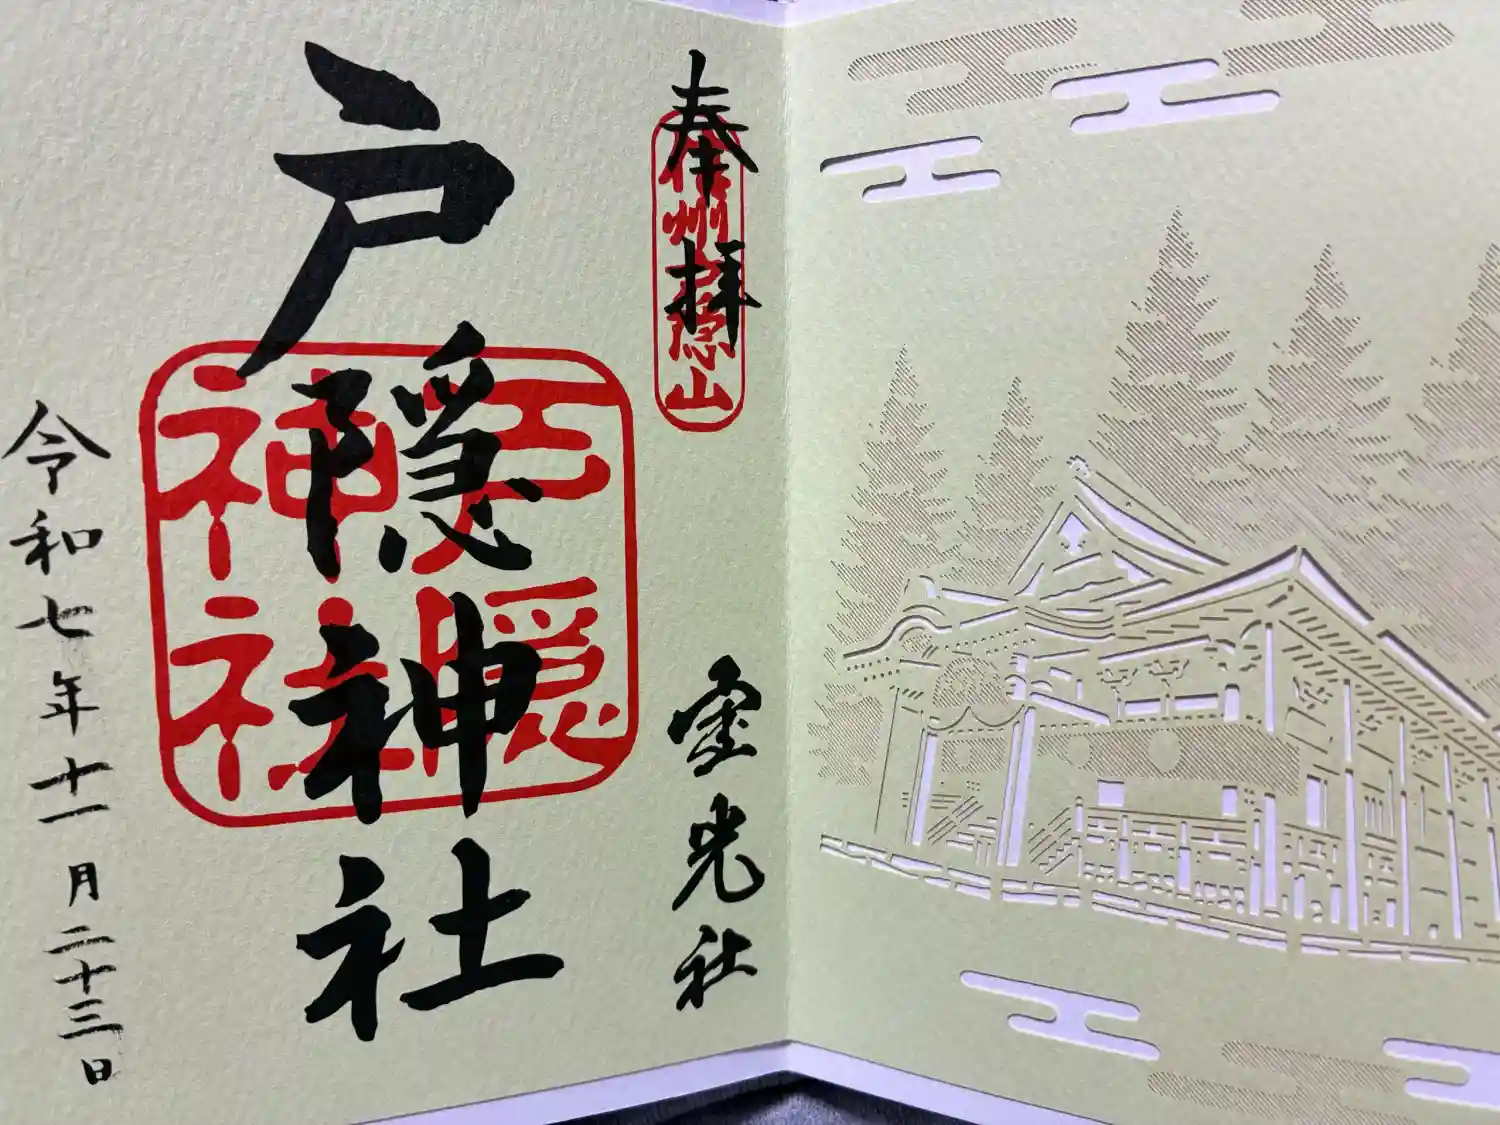 奉拝
信州戸隠山
宝光社
戸隠神社
戸隠
神社
令和七年十一月二十三日